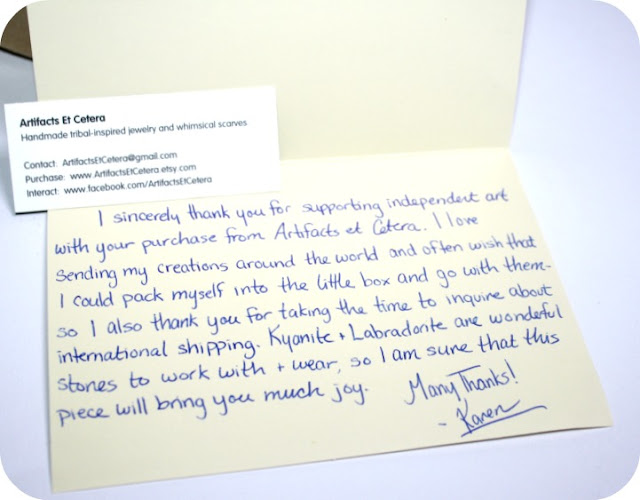 Artifacts Et Cetera
Handmade tribal-inspired jewelry and whimsical scarves
Contact: ArtifactsEtCetera@gmail.com
Purchase: www.ArtifactsEtCetera.etsy.com
Interact: www.facebook.com/ArtifactsEtCetera
I sincerely thank you for supporting independent art
with your purchase from Artifacts et Cetera. I love
sending my creations around the world and often wish that
I could pack myself into the little box and go with them-
so I also thank you for taking the time to inquire about
international shipping. Kyanite + Labradorite are wonderful
stones to work with + wear, so I am sure that this
piece will bring you much joy.
Many Thanks!
- Karen